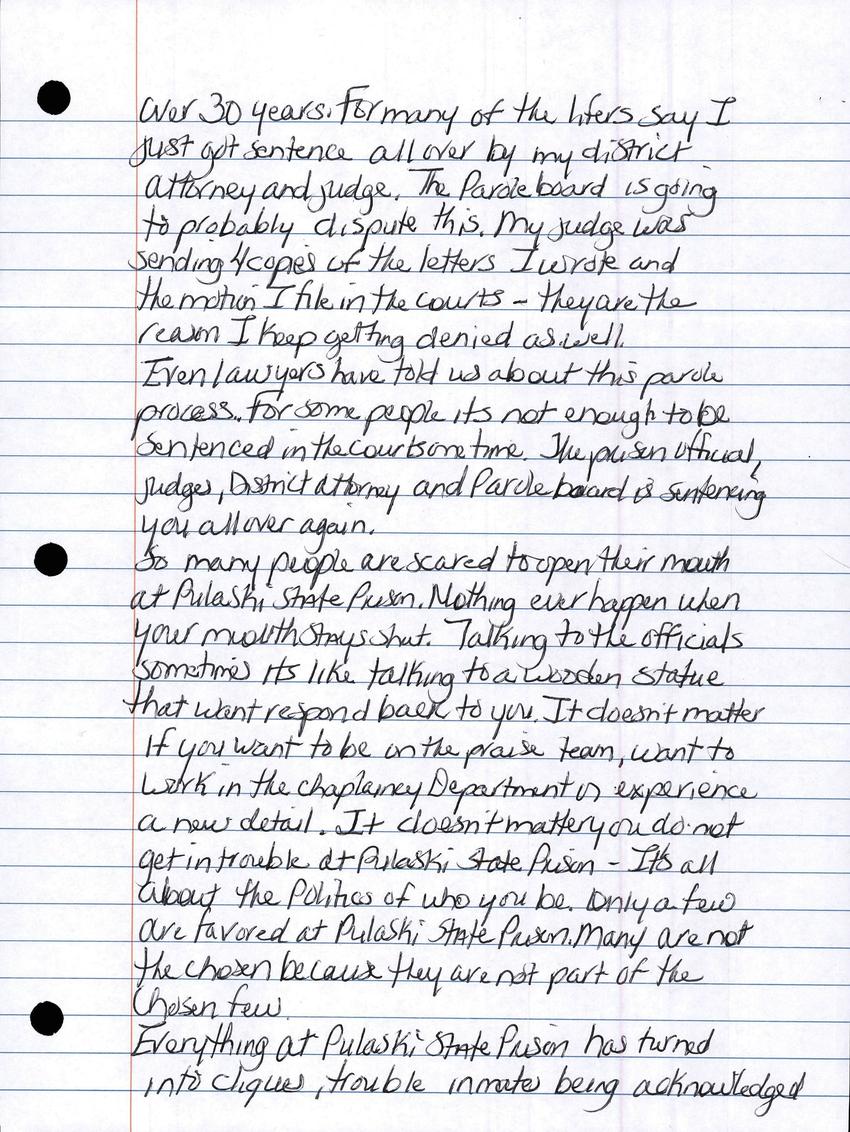 over 30 years. For many of the lifers say I
just got sentence all over by my district
attorney and judge. The Parole board is going
to probably dispute this. My judge was
sending 4 copies of the letters I wrote and
the motion I file in the courts - they are the
reason I keep getting denied as well.
Even lawyers have told us about this parole
process. For some people its not enough to be
sentenced in the courts one time. The prison official,
judges, District attorney and Parole board is sentencing
you all over again.
So many people are scared to open their mouth
at Pulaski State Prison. Nothing ever happen when
your mouth stays shut. Talking to the officials
sometimes its like talking to a wooden statue
that want respond back to you. It doesn't matter
if you want to be on the praise team, want to
work in the chaplaincy Department or experience
a new detail. It doesn't matter you do not
get in trouble at Pulaski State Prison - It's all
about the Politics of who you be. Only a few
are favored at Pulaski State Prison. Many are not
the chosen because they are not part of the
Chosen few.
Everything at Pulaski State Prison has turned
into cliques, trouble inmates being acknowledged